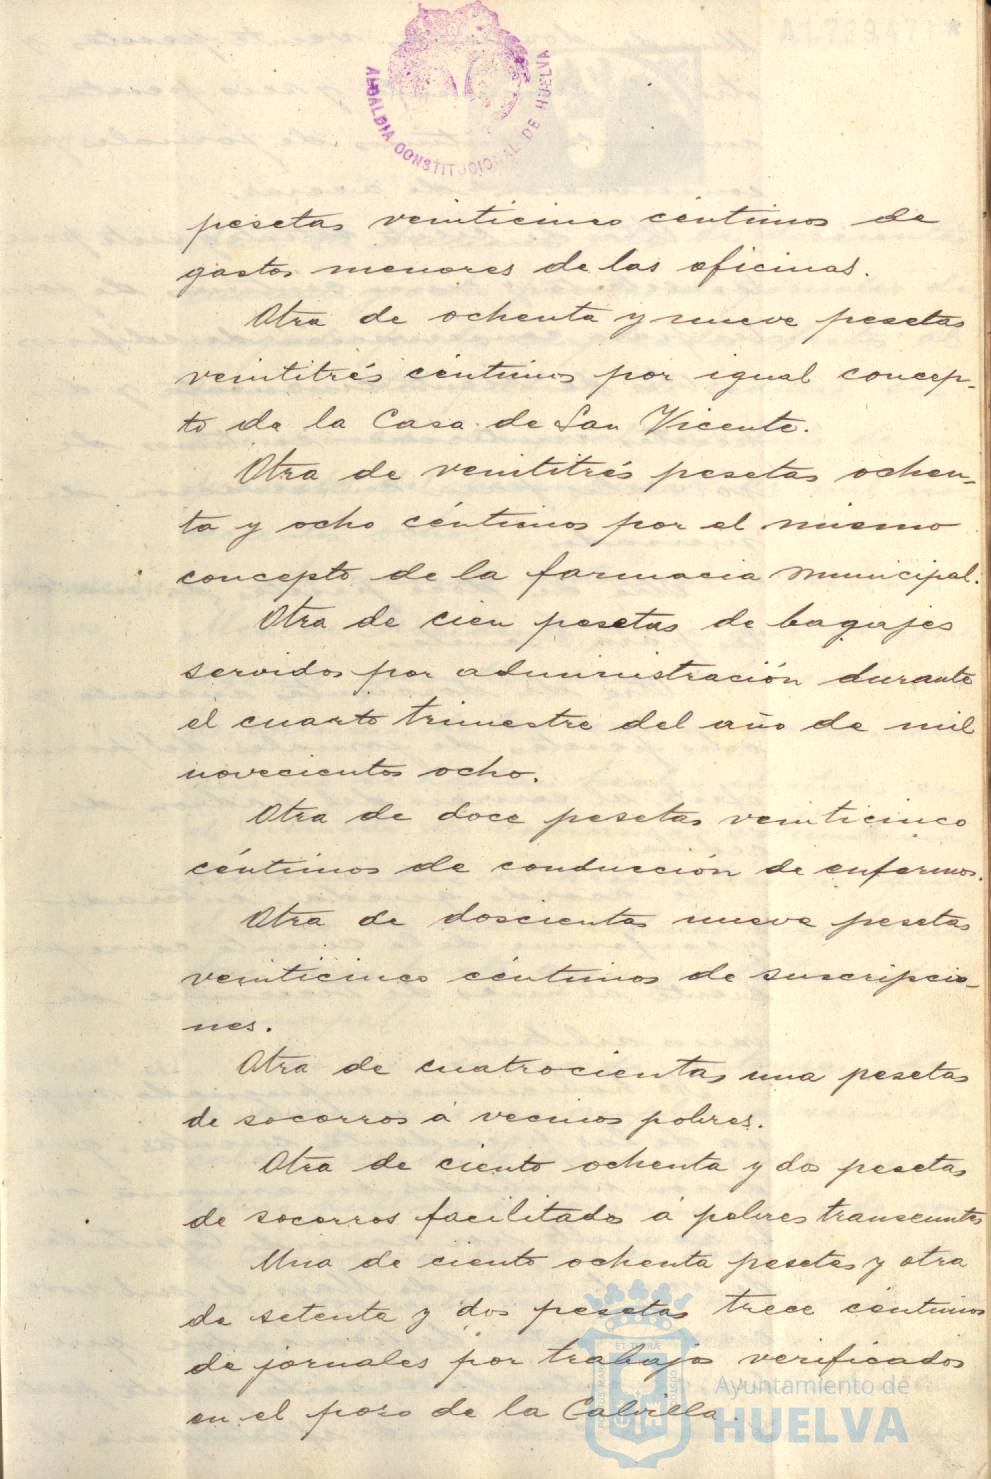 ALCALDIA CONSTITUCIONAL DE HUELVA
pesetas veinticinco céntimos de
gastos menores de las oficinas.
Otra de ochenta y nueve pesetas
veintitrés céntimos por igual concep-
to de la Casa de San Vicente.
Otra de veintitrés pesetas ochen-
ta y ocho céntimos por el mismo
concepto de la farmacia municipal.
Otra de cien pesetas de bagajes
servidos por administración durante
el cuarto trimestre del año de mil
novecientos ocho.
Otra de doce pesetas veinticinco
céntimos de conducción de enfermos.
Otra de doscientas nueve pesetas
veinticinco céntimos de suscripcio-
nes.
Otra de cuatrocientas una pesetas
de socorros á vecinos pobres.
Otra de ciento ochenta y dos pesetas
de socorros facilitados á pobres transeuntes
Una de ciento ochenta pesetas y otra
de setenta y dos pesetas trece céntimos
de jornales por trabajos verificados
en el pozo de la Calvilla.
Ayuntamiento de
HUELVA